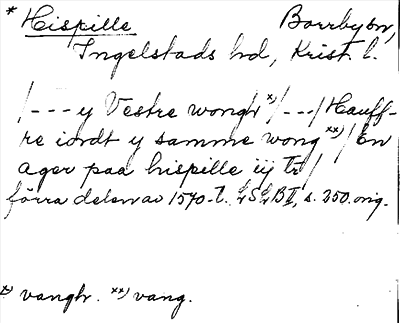 * Hispille Borrby sn,
Ingelstads hd, Krist. l.
/--- y Vestre wongh x) /---/ Hauff-
re iordt y samme wong xx) / En
ager paa hispille iij tr /
förra delen av 1570-t. B II, s. 250. orig.
x) vangh. xx) vang.